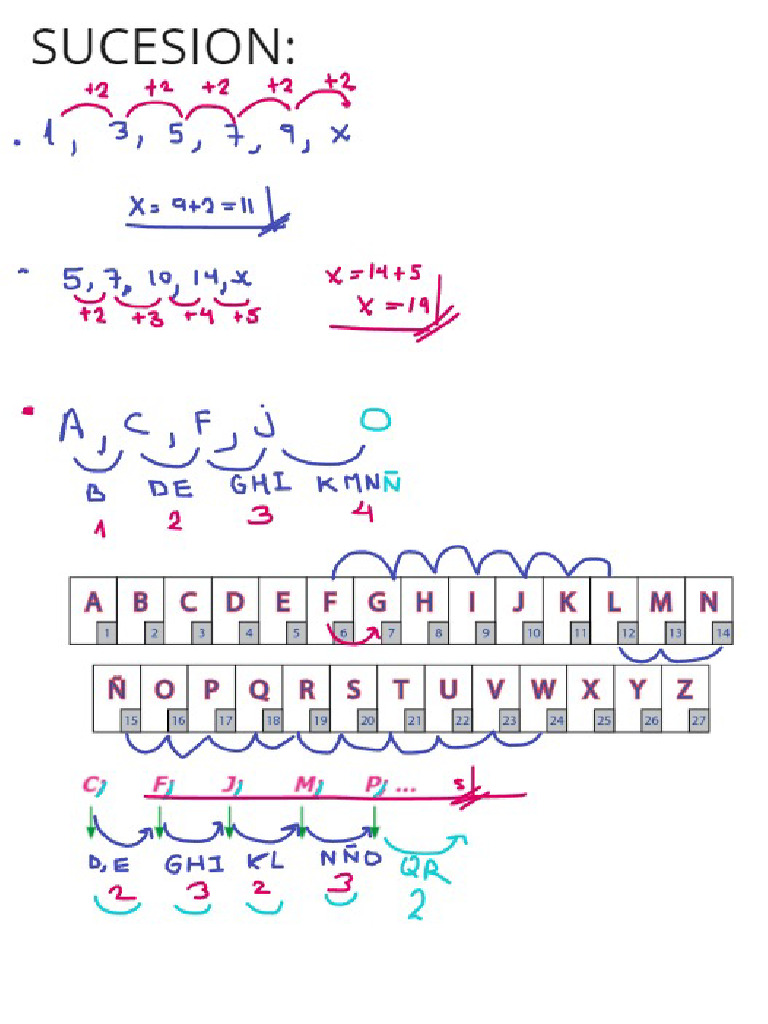 SUCESION:
+2 +2 +2 +2 +2
. 1, 3, 5, 7, 9, x
x = 9+2 = 11
5, 7, 10, 14, x
+2 +3 +4 +5
x = 14+5
x = 19
A, C, F, J O
B DE GHI KMNÑ
1 2 3 4
A B C D E F G H I J K L M N
1 2 3 4 5 6 7 8 9 10 11 12 13 14
Ñ O P Q R S T U V W X Y Z
15 16 17 18 19 20 21 22 23 24 25 26 27
C, F, J, M, P, ... s
D, E GHI KL NÑO QR
2 3 2 3 2